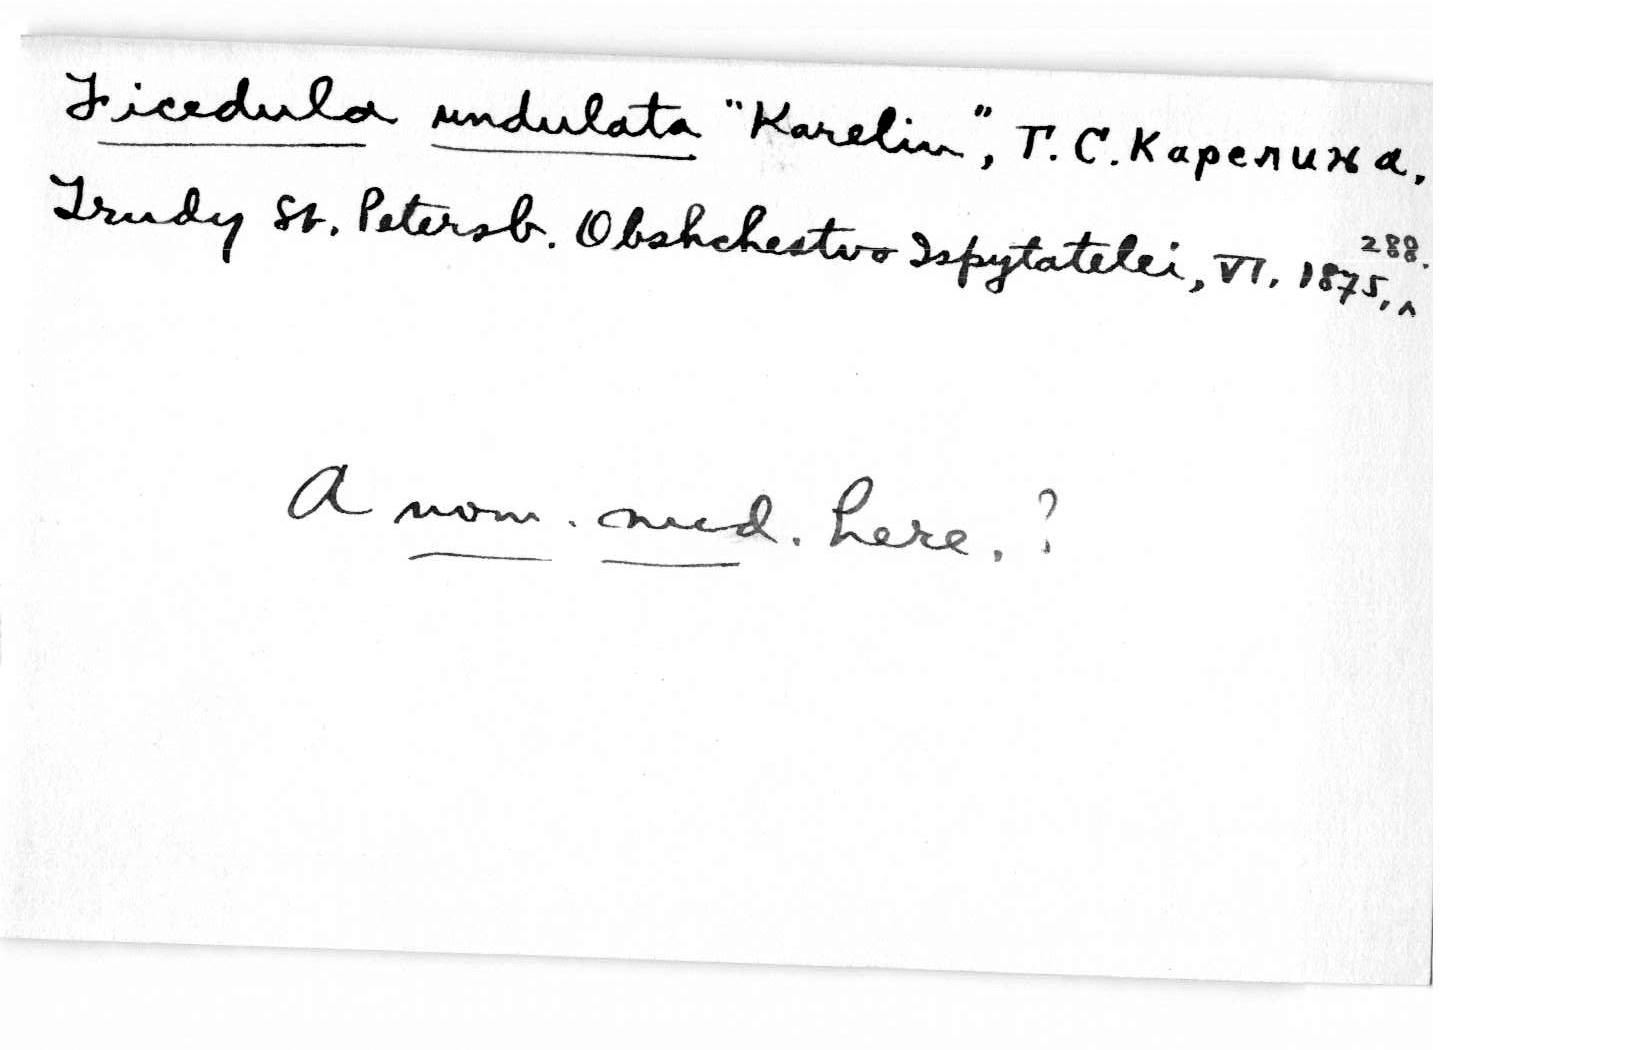 Ficedula undulata "Karelin", Г. С. Карелина,
Trudy St. Petersb. Obshchestvo Ispytatelei, VI. 1875, ^ 288.
A nom. nud. here. ?